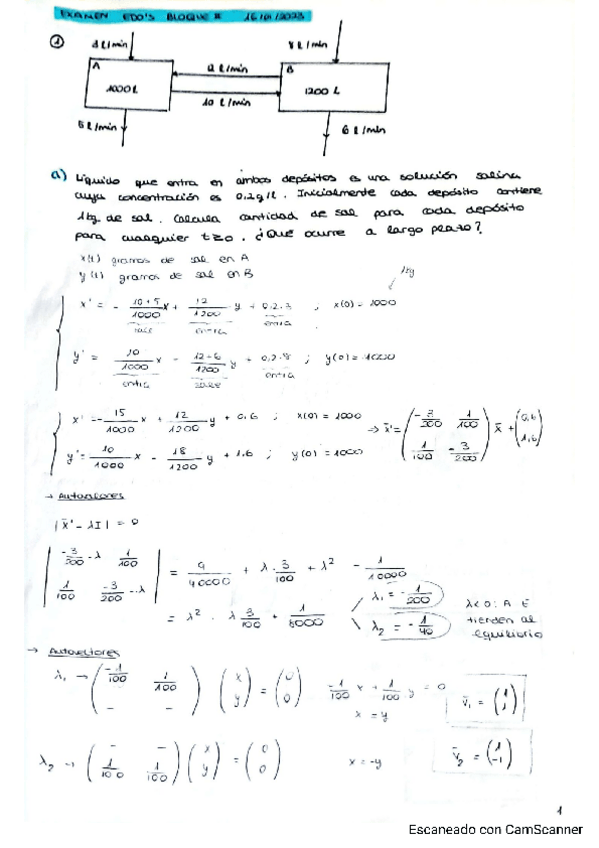 EXAMEN EDO'S BLOQUE II 16/01/2023
1
3 L/min
8 L/min
A
1000 L
12 L/min
B
1200 L
10 L/min
5 L/min
6 L/min
a) Líquido que entra en ambos depósitos es una solución salina
cuya concentración es 0.2 g/L. Inicialmente cada depósito contiene
1kg de sal. Calcula cantidad de sal para cada depósito
para cualquier t≥0. ¿Qué ocurre a largo plazo?
x(t) gramos de sal en A
y(t) gramos de sal en B
1kg
x' = - 10+5/1000 x + 12/1200 y + 0.2·3 ; x(0) = 1000
sale entra entra
y' = 10/1000 x - 12+6/1200 y + 0,2·8 ; y(0) = 1000
entra sale entra
x' = - 15/1000 x + 12/1200 y + 0.6 ; x(0) = 1000
y' = 10/1000 x - 18/1200 y + 1.6 ; y(0) = 1000
⇒ x̄' = ( -3/200 1/100 ; 1/100 -3/200 ) x̄ + ( 0,6 ; 1,6 )
→ Autovalores
| x̄' - λI | = 0
| -3/200 - λ 1/100 ; 1/100 -3/200 - λ | = 9/40000 + λ · 3/100 + λ² - 1/10000
= λ² + λ 3/100 + 1/8000
λ₁ = - 1/200
λ₂ = - 1/40
λ<0: A E
tienden al
equilibrio
→ Autovectores
λ₁ → ( -1/100 1/100 ; - - ) ( x ; y ) = ( 0 ; 0 ) -1/100 x + 1/100 y = 0
x = y
v̄₁ = ( 1 ; 1 )
λ₂ → ( - - ; 1/100 1/100 ) ( x ; y ) = ( 0 ; 0 ) x = -y
v̄₂ = ( 1 ; -1 )
1
Escaneado con CamScanner